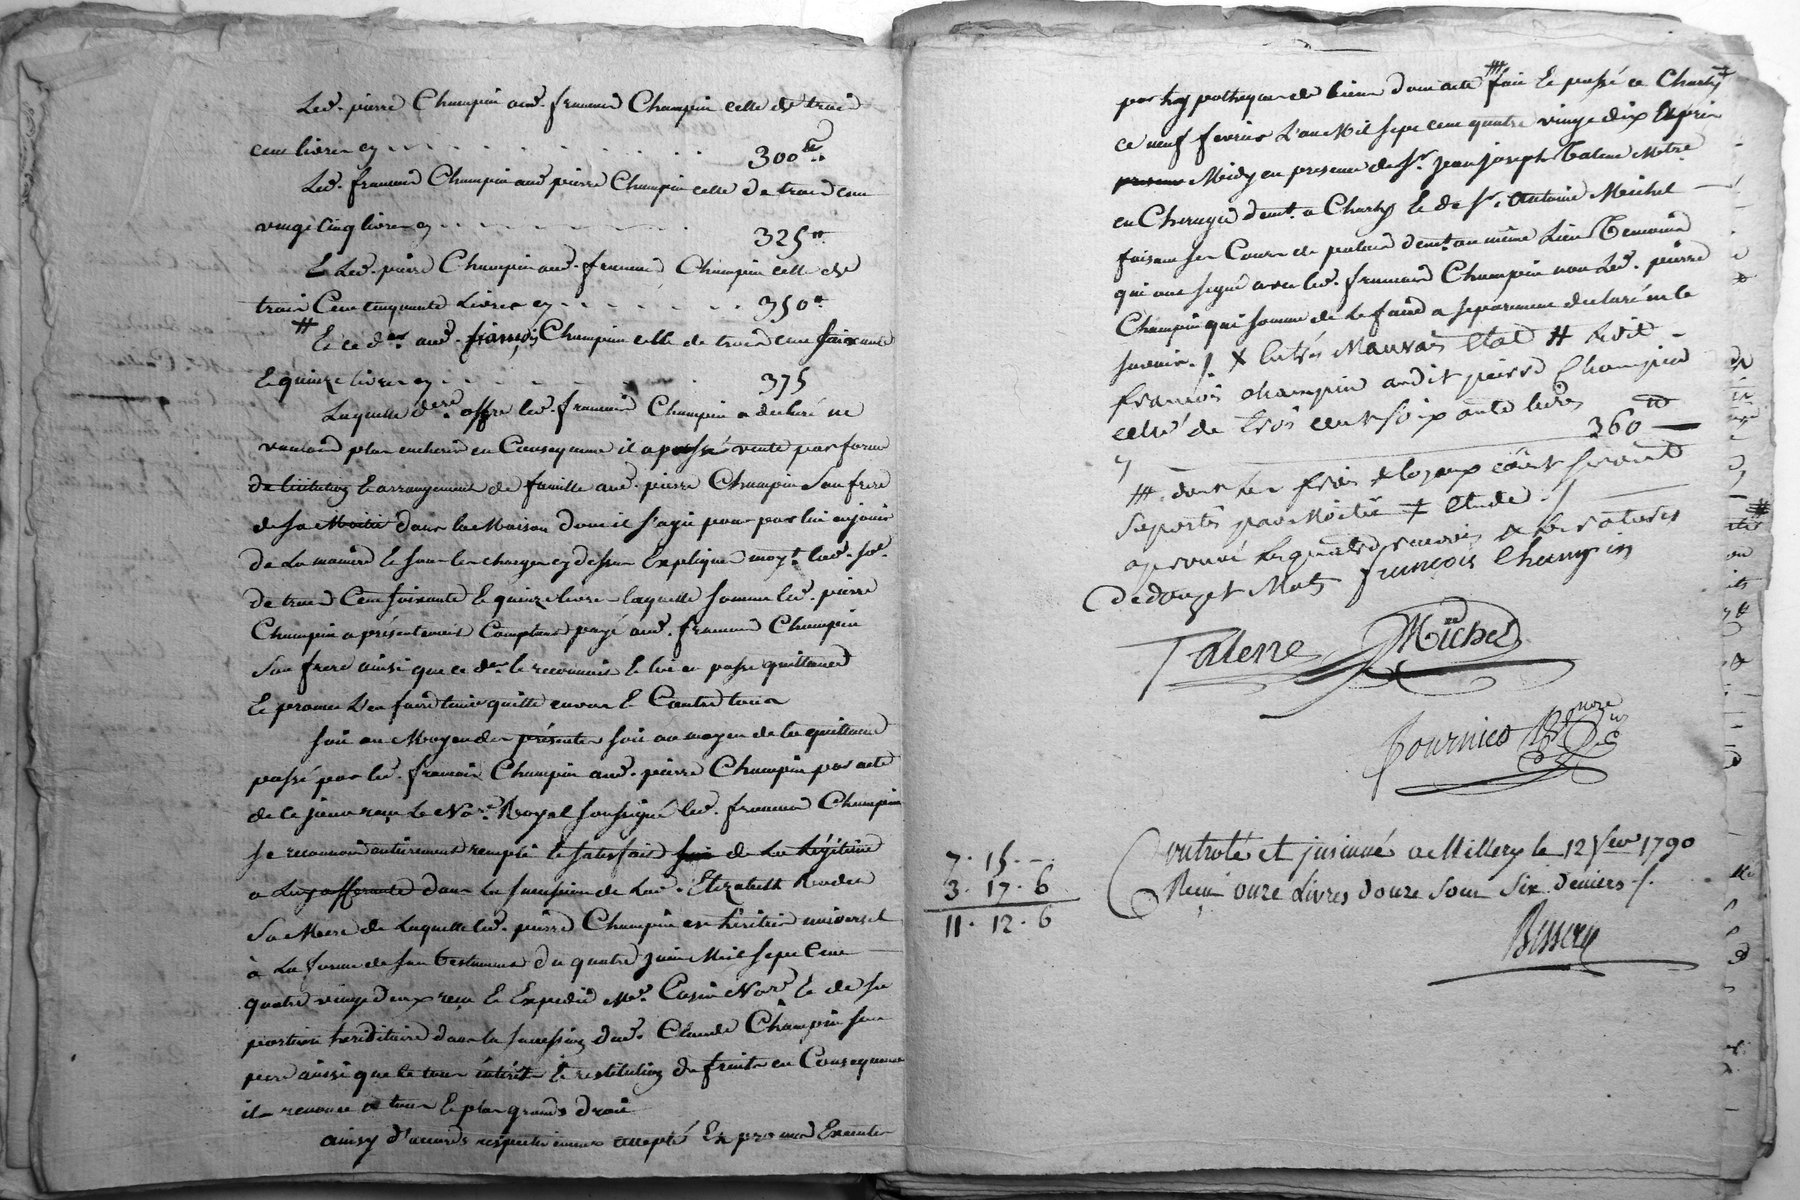 Led. pierre Champin aud. francois Champin celle de trois
cent livres cy 300 lt
Led. francois Champin aud pierre Champin celle de trois cent
vingt cinq livres cy 325 lt
Et Led. pierre Champin aud. francois Champin celle de
trois Cent cinquante Livres cy 350 lt
# Et ce der. aud. françois Champin celle de trois cent soixante
et quinze livres cy 375
Laquelle dere. offre led. francois Champin a déclaré ne
vouloir plus encherir en Consequence il a passé vente par forme
de licitation et arrangement de famille aud. pierre Champin Son frere
de sa Moitié dans la Maison dont il s'agit pour par lui en jouir
de La maniere et sous les charges cy dessus Expliqué moyt. lad. so.
de trois Cent soixante et quinze livres laquelle somme led. pierre
Champin a présentement Comptant payé aud. francois Champin
Son frere ainsi que ce der. le reconnoit et lui en passe quittance
et promet L'en faire tenir quitte envers et Contre tous
soit au Moyen des présentes soit au moyen de la quittance
passé par led. francois Champin aud. pierre Champin par acte
de ce jour reçu Le Nore. Royal soussigné led. francois Champin
se reconnoit entierement rempli et satisfait de La Légitime
a Luy afferante dans la succession de Lad. Elizabeth
Sa Mere de Laquelle led. pierre Champin est héritier universel
à La forme de son testament du quatre juin Mil sept Cent
quatre vingt deux reçu et Expedié Me. Nore. et de sa
portion héréditaire dans la succession dud. Claude Champin son
pere ainsi que de tous intérêts et restitution de fruits en Consequence
il renonce a tous et plus grands droits
ainsy d'accords respectivement accepté Et promis Executer
par hypotheque de biens dont acte ### fait et passé a Charly
ce neuf fevrier L'an Mil sept cent quatre vingt dix après
Midy en presence de Sr. jean joseph Talene Metre
en Chirurgie demt. a Charly et de Sr. Antoine Michel
faisant ses Cours de demt. au même Lieu Temoins
qui ont signé avec led. francois Champin non Led. pierre
Champin qui sommé de Le faire a séparement declaré ne le
savoir ./. X En très Mauvais Etat # Ledit
françois Champin audit pierre Champin
celle de trois cent soixante livres 360 lt
### dont les frais & loyaux coûts seront
suportés par Moitié ≠ etude ./.
aprouvé les quatre renvois & les ratures
De douze Mots françois Champin
Talene Michel
Contrôlé et jnsinué a Millery le 12 fevr 1790
Reçu onze Livres douze Sous Six deniers ./.
7. 15. -
3. 17. 6
11. 12. 6